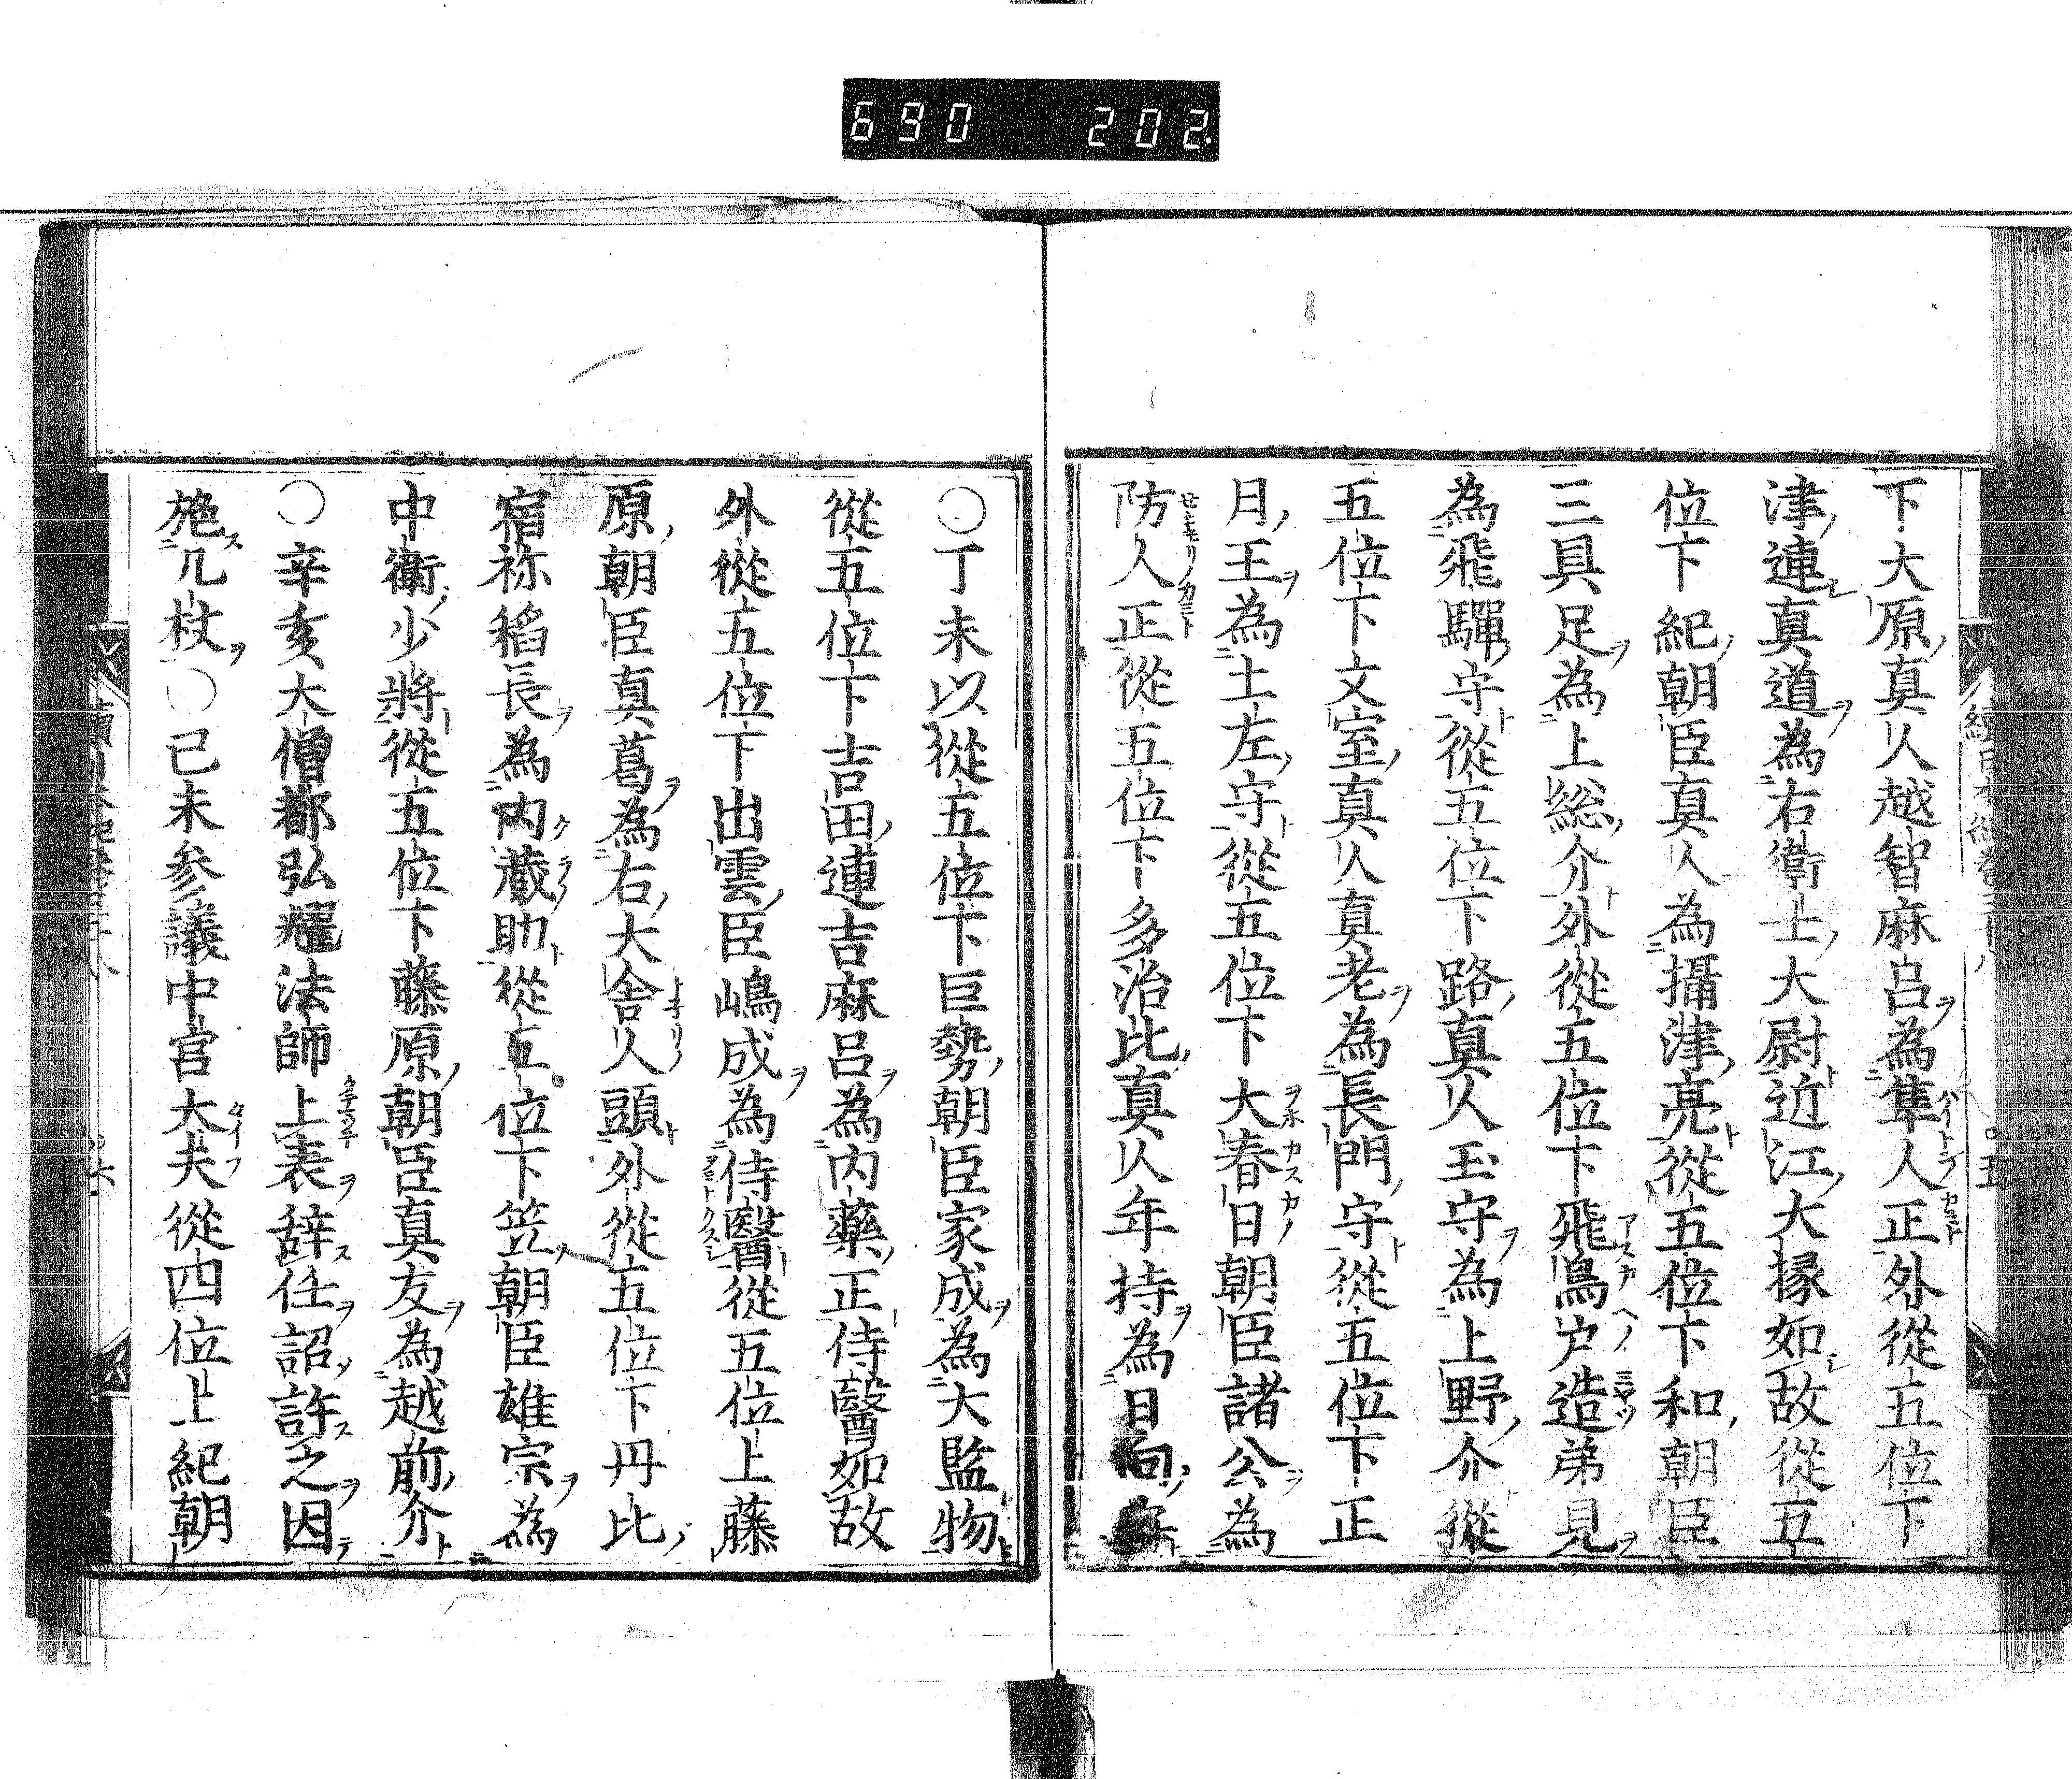 690 202.
下大原真人越智麻呂為隼人正外從五位下
津連真道為右衛士大尉近江大掾如故從五
位下紀朝臣真人為攝津亮從五位下和朝臣
三具足為上総介外從五位下飛鳥戶造弟見
為飛驒守從五位下路真人玉守為上野介從
五位下文室真人真老為長門守從五位下正
月王為土左守從五位下大春日朝臣諸公為
防人正從五位下多治比真人年持為日向
〇丁未以從五位下巨勢朝臣家成為大監物
從五位下吉田連吉麻呂為內藥正侍醫如故
外從五位下出雲臣嶋成為侍醫從五位上藤
原朝臣真葛為右大舎人頭外從五位下丹比
宿祢稻長為內蔵助從五位下笠朝臣雄宗為
中衛少將從五位下藤原朝臣真友為越前介
〇辛亥大僧都弘耀法師上表辞任詔許之因
施几杖〇己未参議中宮大夫從四位上紀朝